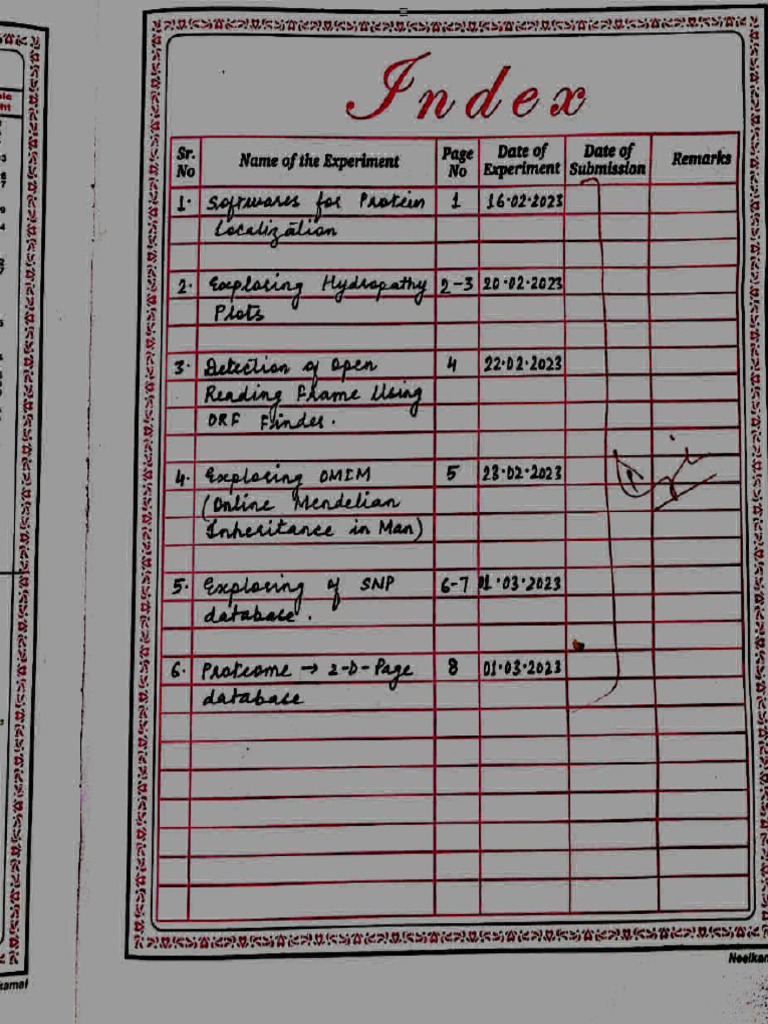 Index
Sr. No Name of the Experiment Page No Date of Experiment Date of Submission Remarks
1. Softwares for Protein 1 16.02.2023
Localization
2. Exploring Hydropathy 2-3 20.02.2023
Plots
3. Detection of Open 4 22.02.2023
Reading Frame Using
ORF Finder.
4. Exploring OMIM 5 23.02.2023
(Online Mendelian
Inheritance in Man)
5. Exploring of SNP 6-7 01.03.2023
database.
6. Proteome → 2-D-Page 8 01.03.2023
database